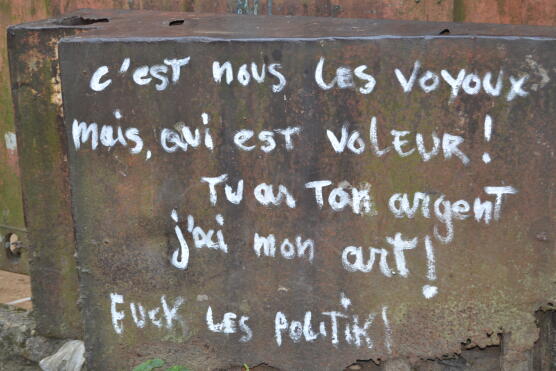 c'est nous les voyoux
mais, qui est voleur !
Tu as ton argent
j'ai mon art !
Fuck les politik !